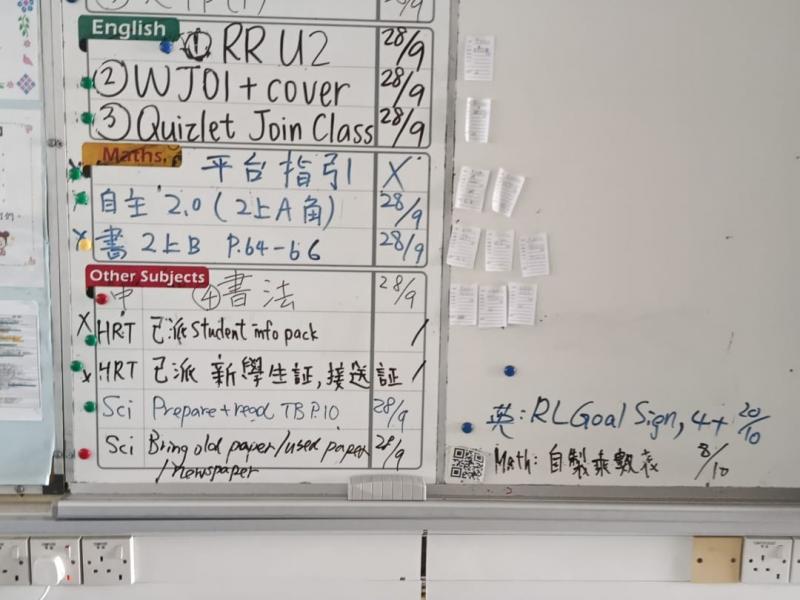 28/9
English
① RR U2 28/9
② WJ01 + cover 28/9
③ Quizlet Join Class 28/9
Maths.
平台指引 X
自主 2.0 (2上A 角) 28/9
書 2上B P.64-66 28/9
Other Subjects
中 ④書法 28/9
X HRT 已派 Student info pack /
x HRT 已派 新學生証,接送証 /
Sci Prepare + read TB P.10 28/9
Sci Bring old paper/used paper 28/9
/newspaper
英: RL Goal Sign, 4+ 20/10
Math: 自製乘數表 8/10